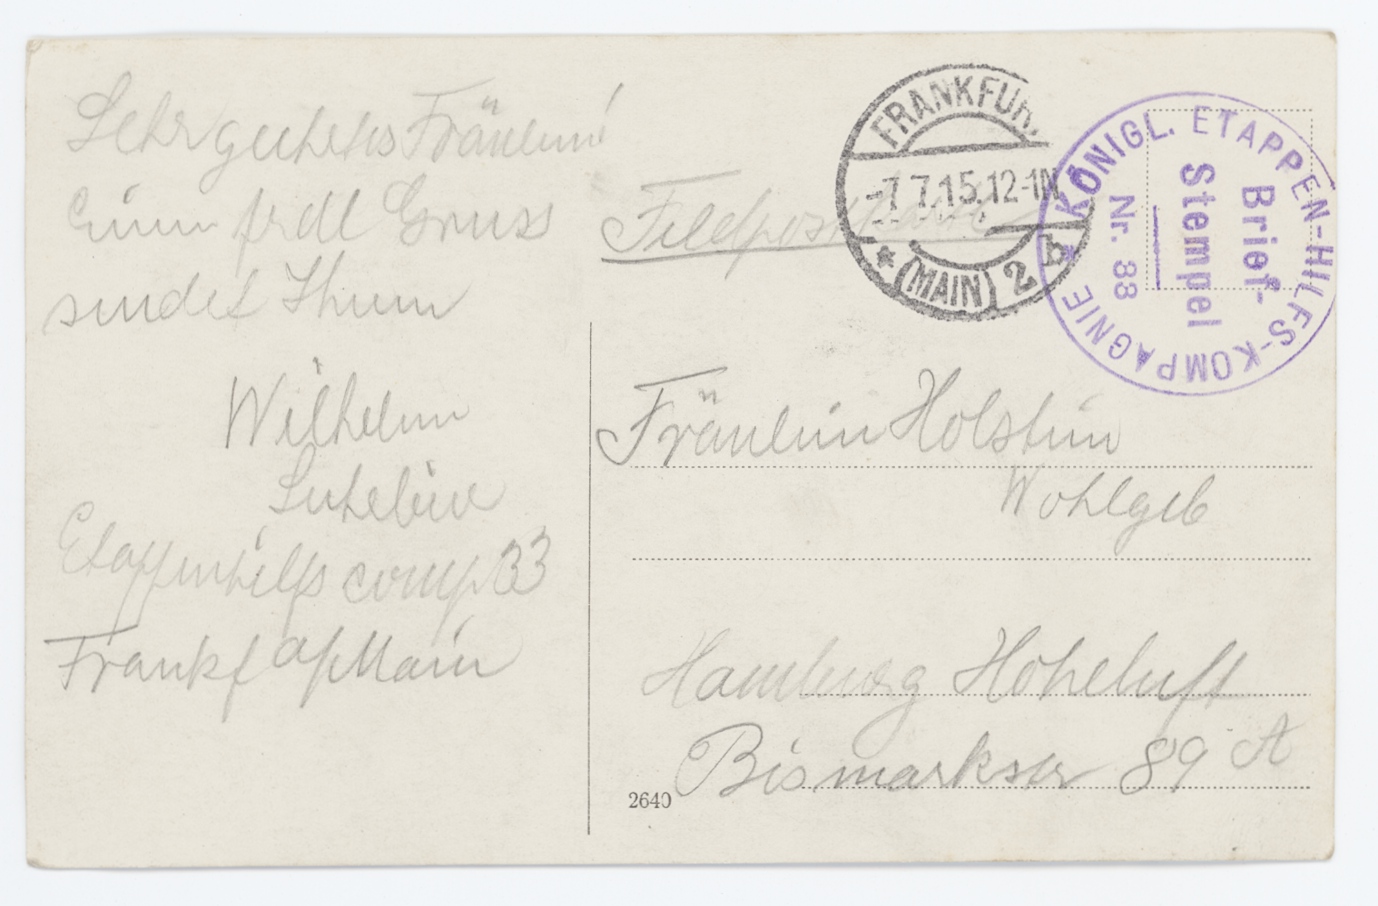 Sehr geehrtes Fräulein!
Einen frdl Gruss
sendet Ihnen
Wilhelm
Etappenhilfs comp 33
Frankf a/Main
FRANKFUR
-7.7.15.12-1N.
* (MAIN) 2 b
KÖNIGL. ETAPPEN-HILFS-KOMPAGNIE *
Nr. 33
Brief-
Stempel
Feldpostkarte
Fräulein Holstein
Wohlgeb
Hamburg Hoheluft
Bismarkstr 89 A
2640